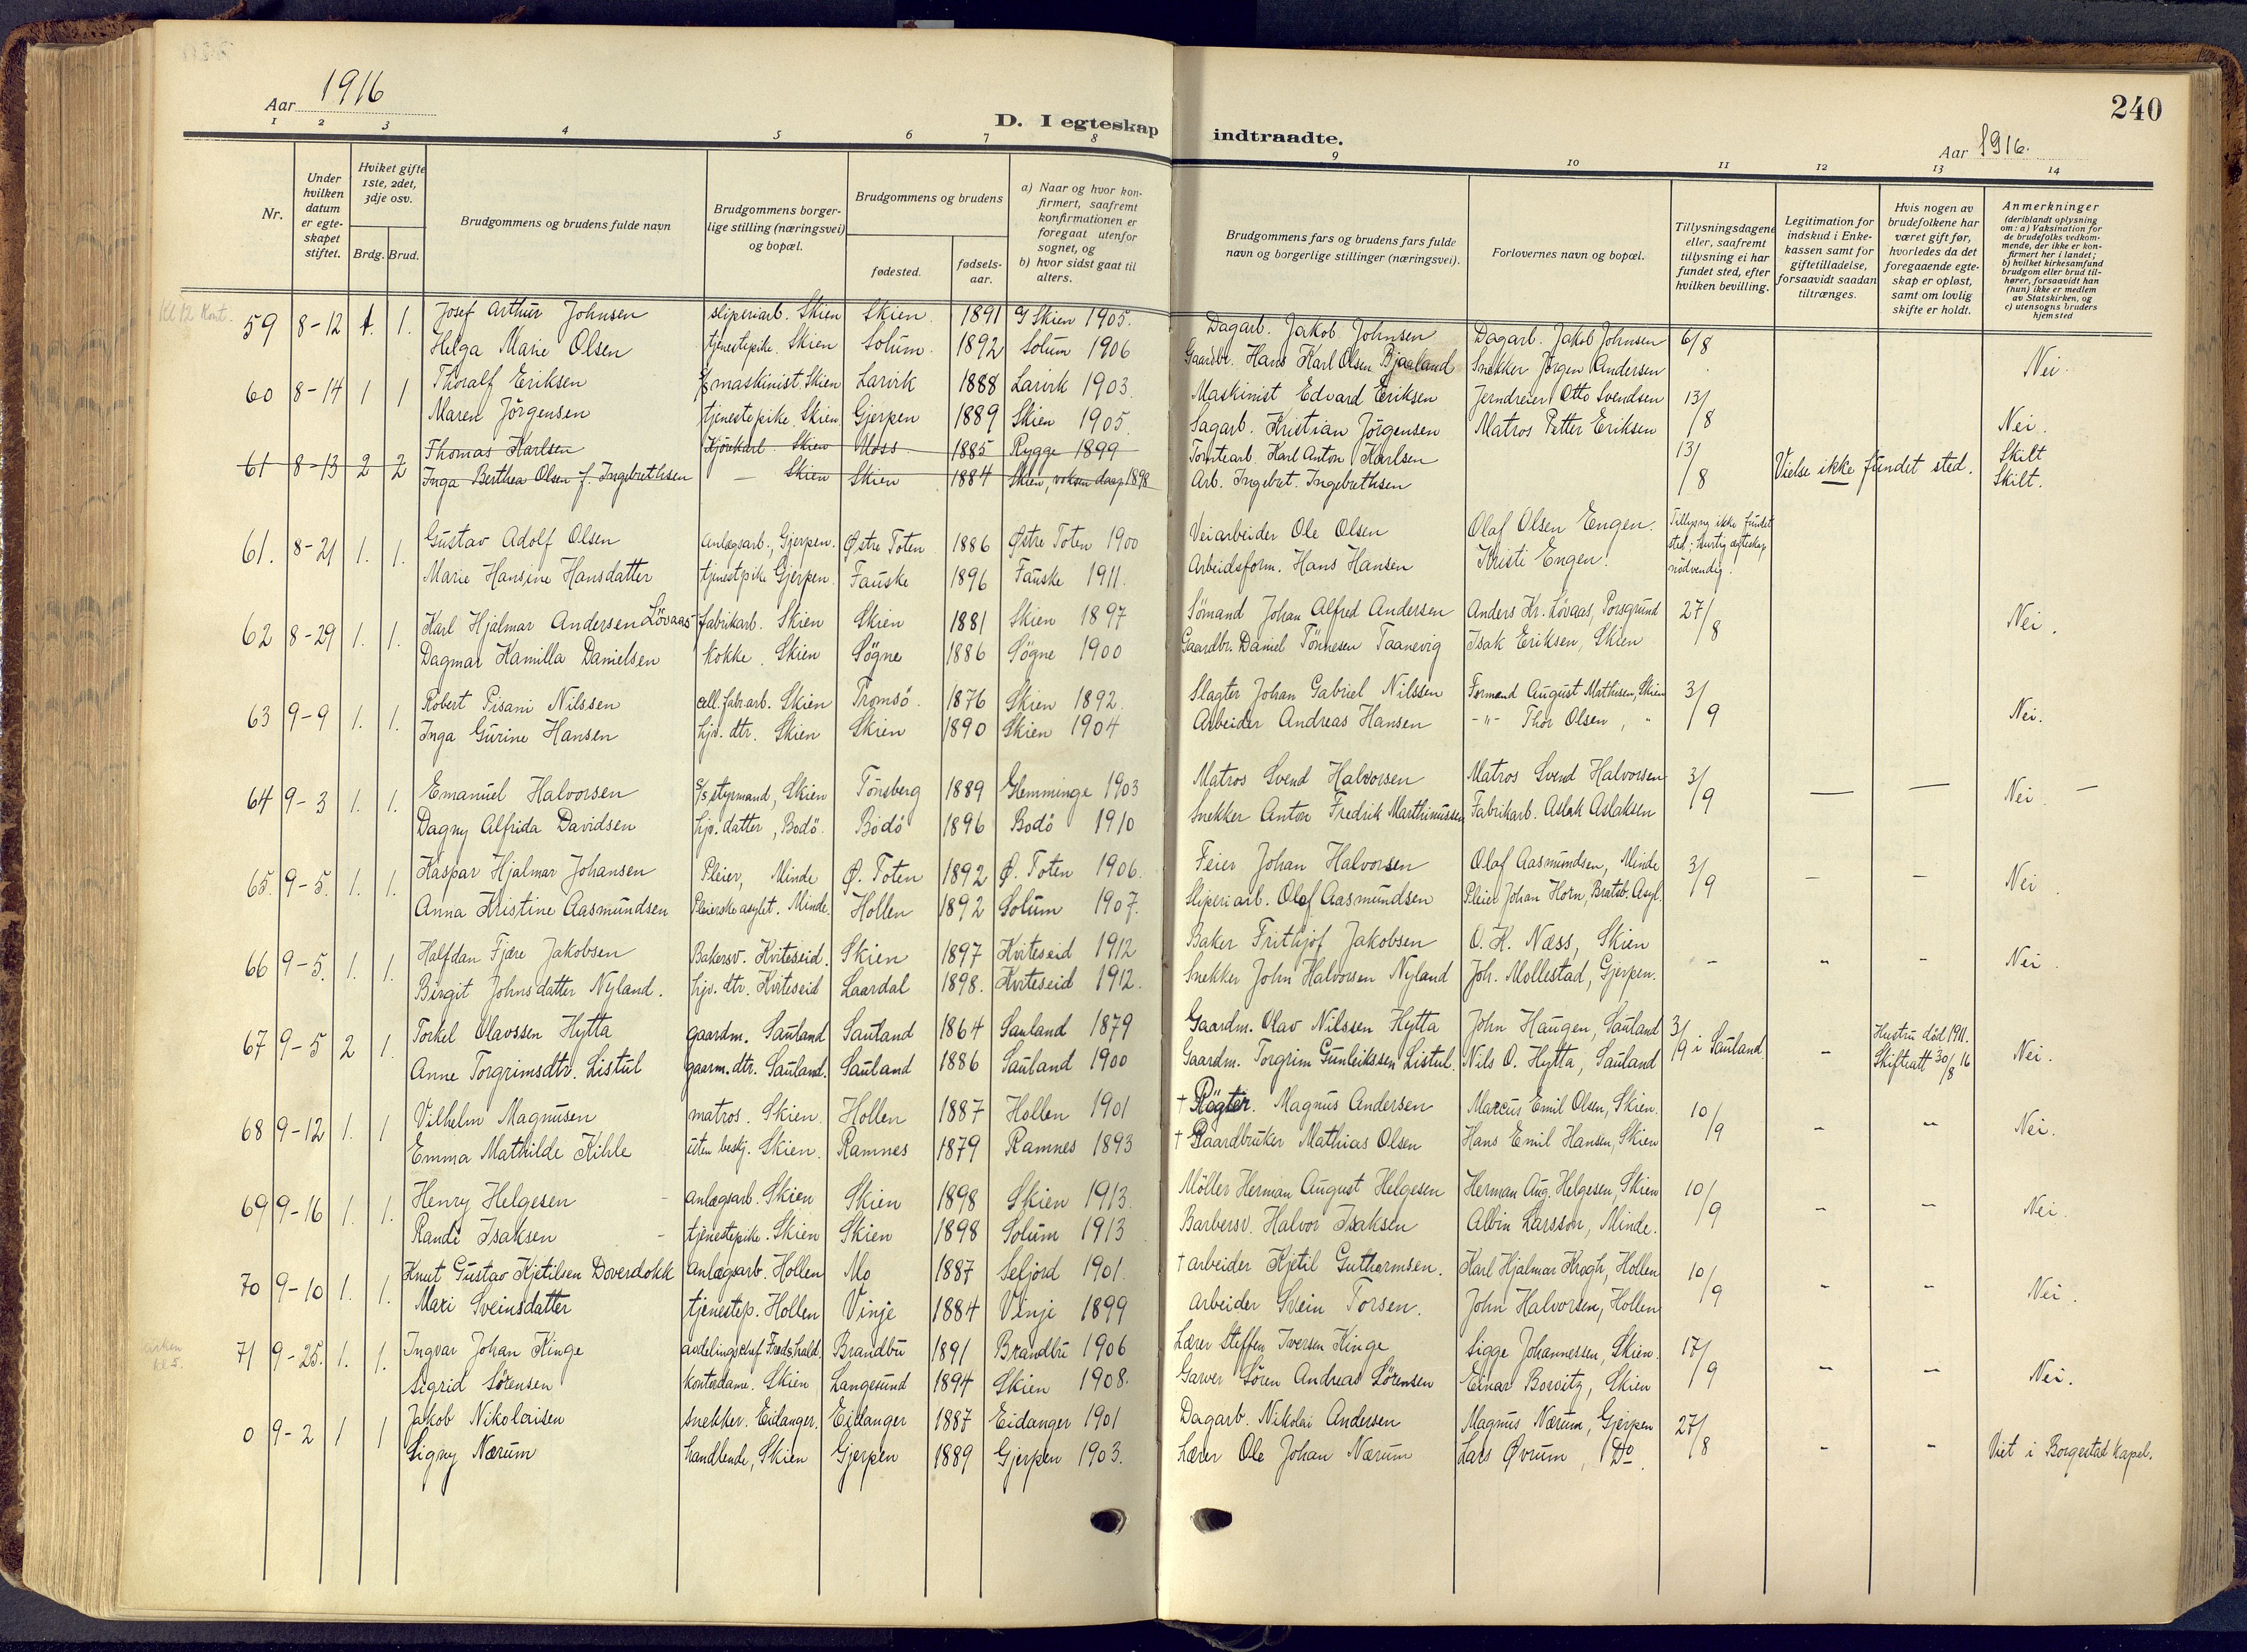 240
Aar 1916
D. I egteskap indtraadte.
Aar 1916.
1 2 3 4 5 6 7 8 9 10 11 12 13 14
Nr.
Under hvilken datum er egteskapet stiftet.
Hviket gifte 1ste, 2det, 3dje osv.
Brdg. Brud.
Brudgommens og brudens fulde navn
Brudgommens borgerlige stilling (næringsvei) og bopæl.
Brudgommens og brudens
fødested.
fødselsaar.
a) Naar og hvor konfirmert, saafremt konfirmationen er foregaat utenfor sognet, og
b) hvor sidst gaat til alters.
Brudgommens fars og brudens fars fulde navn og borgerlige stillinger (næringsvei).
Forlovernes navn og bopæl.
Tillysningsdagene eller, saafremt tillysning ei har fundet sted, efter hvilken bevilling.
Legitimation for indskud i Enkekassen samt for giftetilladelse, forsaavidt saadan tiltrænges.
Hvis nogen av brudefolkene har været gift før, hvorledes da det foregaaende egteskap er opløst, samt om lovlig skifte er holdt.
Anmerkninger (deriblandt oplysning om: a) Vaksination for de brudefolks vedkommende, der ikke er konfirmert her i landet; b) hvilket kirkesamfund brudgom eller brud tilhører, forsaavidt han (hun) ikke er medlem av Statskirken, og c) utensogns bruders hjemsted
Kl 12 Kont.
59 8-12 1. 1. Josef Arthur Johnsen sliperiarb. Skien Skien 1891 Skien 1905. Dagarb. Jakob Johnsen Dagarb. Jakob Johnsen 6/8
Helga Marie Olsen tjenestepike. Skien Solum. 1892 Solum 1906 Gaardbr. Hans Karl Olsen Bjaaland Snekker Jørgen Andersen Nei.
60 8-14 1 1 Thoralf Eriksen maskinist. Skien Larvik 1888 Larvik 1903. Maskinist Edvard Eriksen Jerndreier Otto Svendsen 13/8
Maren Jörgensen tjenestepike. Skien Gjerpen 1889 Skien 1905. Sagarb. Kristian Jörgensen Matros Petter Eriksen Nei.
61 8-13 2 2 Thomas Karlsen Kjörekarl. Skien Moss 1885 Rygge 1899 Tomtearb. Karl Anton Karlsen 13/8 Vielse ikke fundet sted. Skilt
Inga Berthea Olsen f. Ingebrethsen — Skien Skien 1884 Skien, voksen daap 1898 Arb. Ingebret. Ingebrethsen Skilt.
61. 8-21 1. 1. Gustav Adolf Olsen Anlægsarb., Gjerpen. Østre Toten 1886 Østre Toten 1900 Veiarbeider Ole Olsen Olaf Olsen Engen. Tillysng ikke fundet sted; hurtig ægteskap nödvendig.
Marie Hansine Hansdatter tjenestpike Gjerpen. Fauske 1896 Fauske 1911. Arbeidsform. Hans Hansen Kristi Engen.
62 8-29 1. 1. Karl Hjalmar Andersen Lövaas fabrikarb. Skien Skien 1881 Skien 1897 Sömand Johan Alfred Andersen Anders Kr. Lövaas, Porsgrund 27/8
Dagmar Kamilla Danielsen kokke. Skien Sögne 1886 Sögne 1900 Gaardbr. Daniel Tönnesen Taanevig Isak Eriksen, Skien Nei.
63 9-9 1. 1. Robert Pisani Nilssen cell. fabr. arb. Skien Tromsö. 1876 Skien 1892. Slagter Johan Gabriel Nilssen Formand August Mathisen, Skien 3/9
Inga Gurine Hansen hjv. dtr. Skien Skien 1890 Skien 1904 Arbeider Andreas Hansen -"- Thor Olsen, " Nei.
64 9-3 1. 1. Emanuel Halvorsen S/S styrmand, Skien Tönsberg 1889 Glemminge 1903 Matros Svend Halvorsen Matros Svend Halvorsen 3/9 — — Nei. —
Dagny Alfrida Davidsen hjv. datter, Bodö. Bodö 1896 Bodö 1910 Snekker Anton Fredrik Marthinussen Fabrikarb. Aslak Aslaksen
65. 9-5. 1. 1. Kaspar Hjalmar Johansen Pleier, Minde Ø. Toten 1892 Ø. Toten 1906. Feier Johan Halvorsen Olaf Aasmundsen, Minde 3/9 - - Nei
Anna Kristine Aasmundsen Pleierske asylet. Minde. Hollen 1892 Solum 1907. Sliperiarb. Olaf Aasmundsen Pleier Johan Horn, Bratsb. Asyl.
66 9-5. 1. 1. Halfdan Fjære Jakobsen Bakersv. Kviteseid. Skien 1897 Kviteseid 1912 Baker Frithjof Jakobsen O. K. Næss, Skien - - - Nei.
Birgit Johnsdatter Nyland. hjv. dtr. Kviteseid Laardal 1898. Kviteseid 1912. Snekker John Halvorsen Nyland Joh. Mollestad, Gjerpen.
67 9-5 2 1. Torkel Olavssen Hytta gaardm. Sauland Sauland 1864 Sauland 1879 Gaardm. Olav Nilssen Hytta John Haugen, Sauland 3/9 i Sauland. - Hustru död 1911. Skifteatt 30/8 16 Nei.
Anne Torgrimsdtr. Listul gaarm. dtr. Sauland. Sauland 1886 Sauland 1900 Gaardm. Torgrim Gunleikssen Listul. Nils O. Hytta, Sauland
68 9-12 1. 1 Vilhelm Magnusen matros. Skien. Hollen 1887 Hollen 1901 † Røgter. Magnus Andersen Marcus Emil Olsen, Skien. 10/9 - - Nei.
Emma Mathilde Kihle uten besk. Skien. Ramnes 1879 Ramnes 1893 † Gaardbruker Mathias Olsen Hans Emil Hansen, Skien
69 9-16 1. 1. Henry Helgesen anlægsarb. Skien Skien 1898 Skien 1913. Möller Herman August Helgesen Herman Aug. Helgesen, Skien 10/9 - - Nei.
Randi Isaksen tjenestepike. Skien Skien 1898 Solum 1913 Barbersv. Halvor Isaksen Albin Larsson, Minde.
70 9-10 1. 1. Knut Gustav Kjetilsen Doverdokk Anlægsarb. Hollen Mo 1887 Sefjord 1901. † arbeider Kjetil Guthormsen. Karl Hjalmar Krogh, Hollen 10/9 - - Nei.
Mari Sveinsdatter tjenestep. Hollen Vinje 1884 Vinje 1899 Arbeider Svein Torsen. John Halvorsen, Hollen
Kirken kl 5.
71 9-25. 1. 1. Ingvar Johan Kinge avdelingschef Freds.hald. Brandbu 1891 Brandbu 1906 Lærer Steffen Iversen Kinge Sigge Johannessen, Skien. 17/9 - - Nei.
Sigrid Sörensen Kontordame. Skien Langesund 1894 Skien 1908. Garver Sören Andreas Sörensen Einar Borvitz, Skien
0 9-2 1 1 Jakob Nikolaisen snekker. Eidanger. Eidanger 1887 Eidanger 1901 Dagarb. Nikolai Andersen Magnus Nærum, Gjerpen 27/8 - - Viet i Borgestad kapel.
Signy Nærum handlende, Skien Gjerpen 1889 Gjerpen 1903. Lærer Ole Johan Nærum Lars Øvrum, Do.